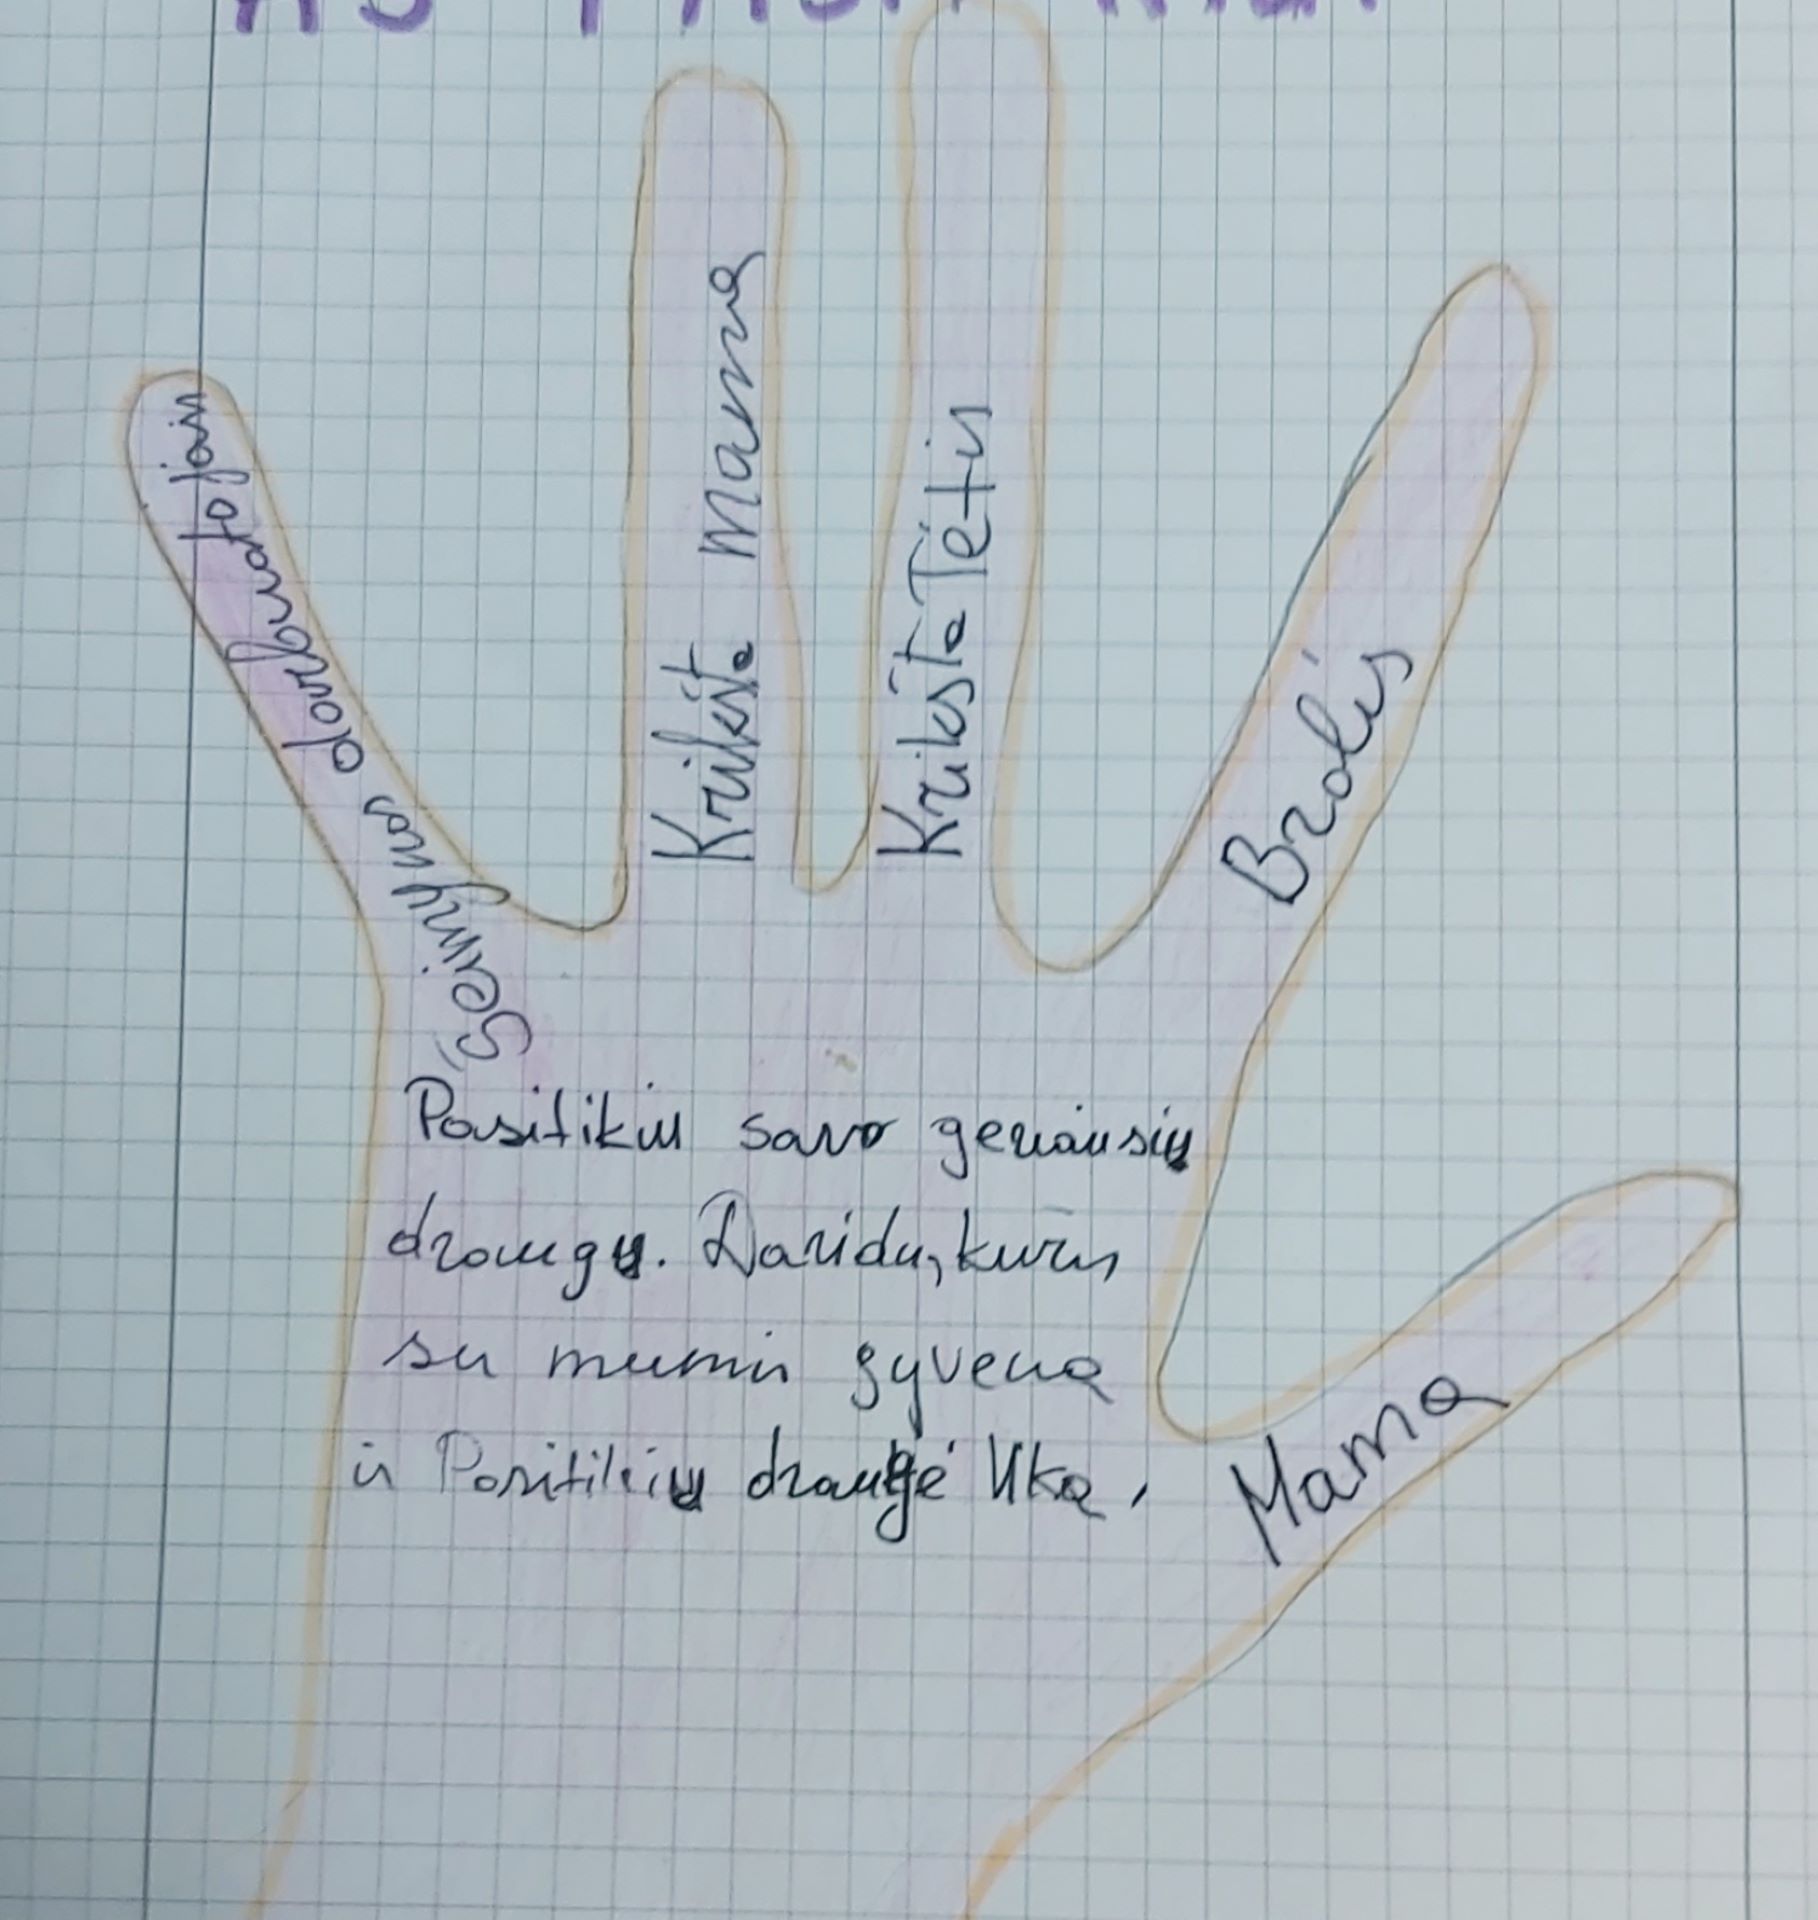 Šeimynos darbuotojais
Krikšto mama
Krikšto Tėtis
Brolis
Mama
Pasitikiu savo geriausiu
draugu. Davidu, kuris
su mumis gyvena
ir Pasitikiu drauge Uka,